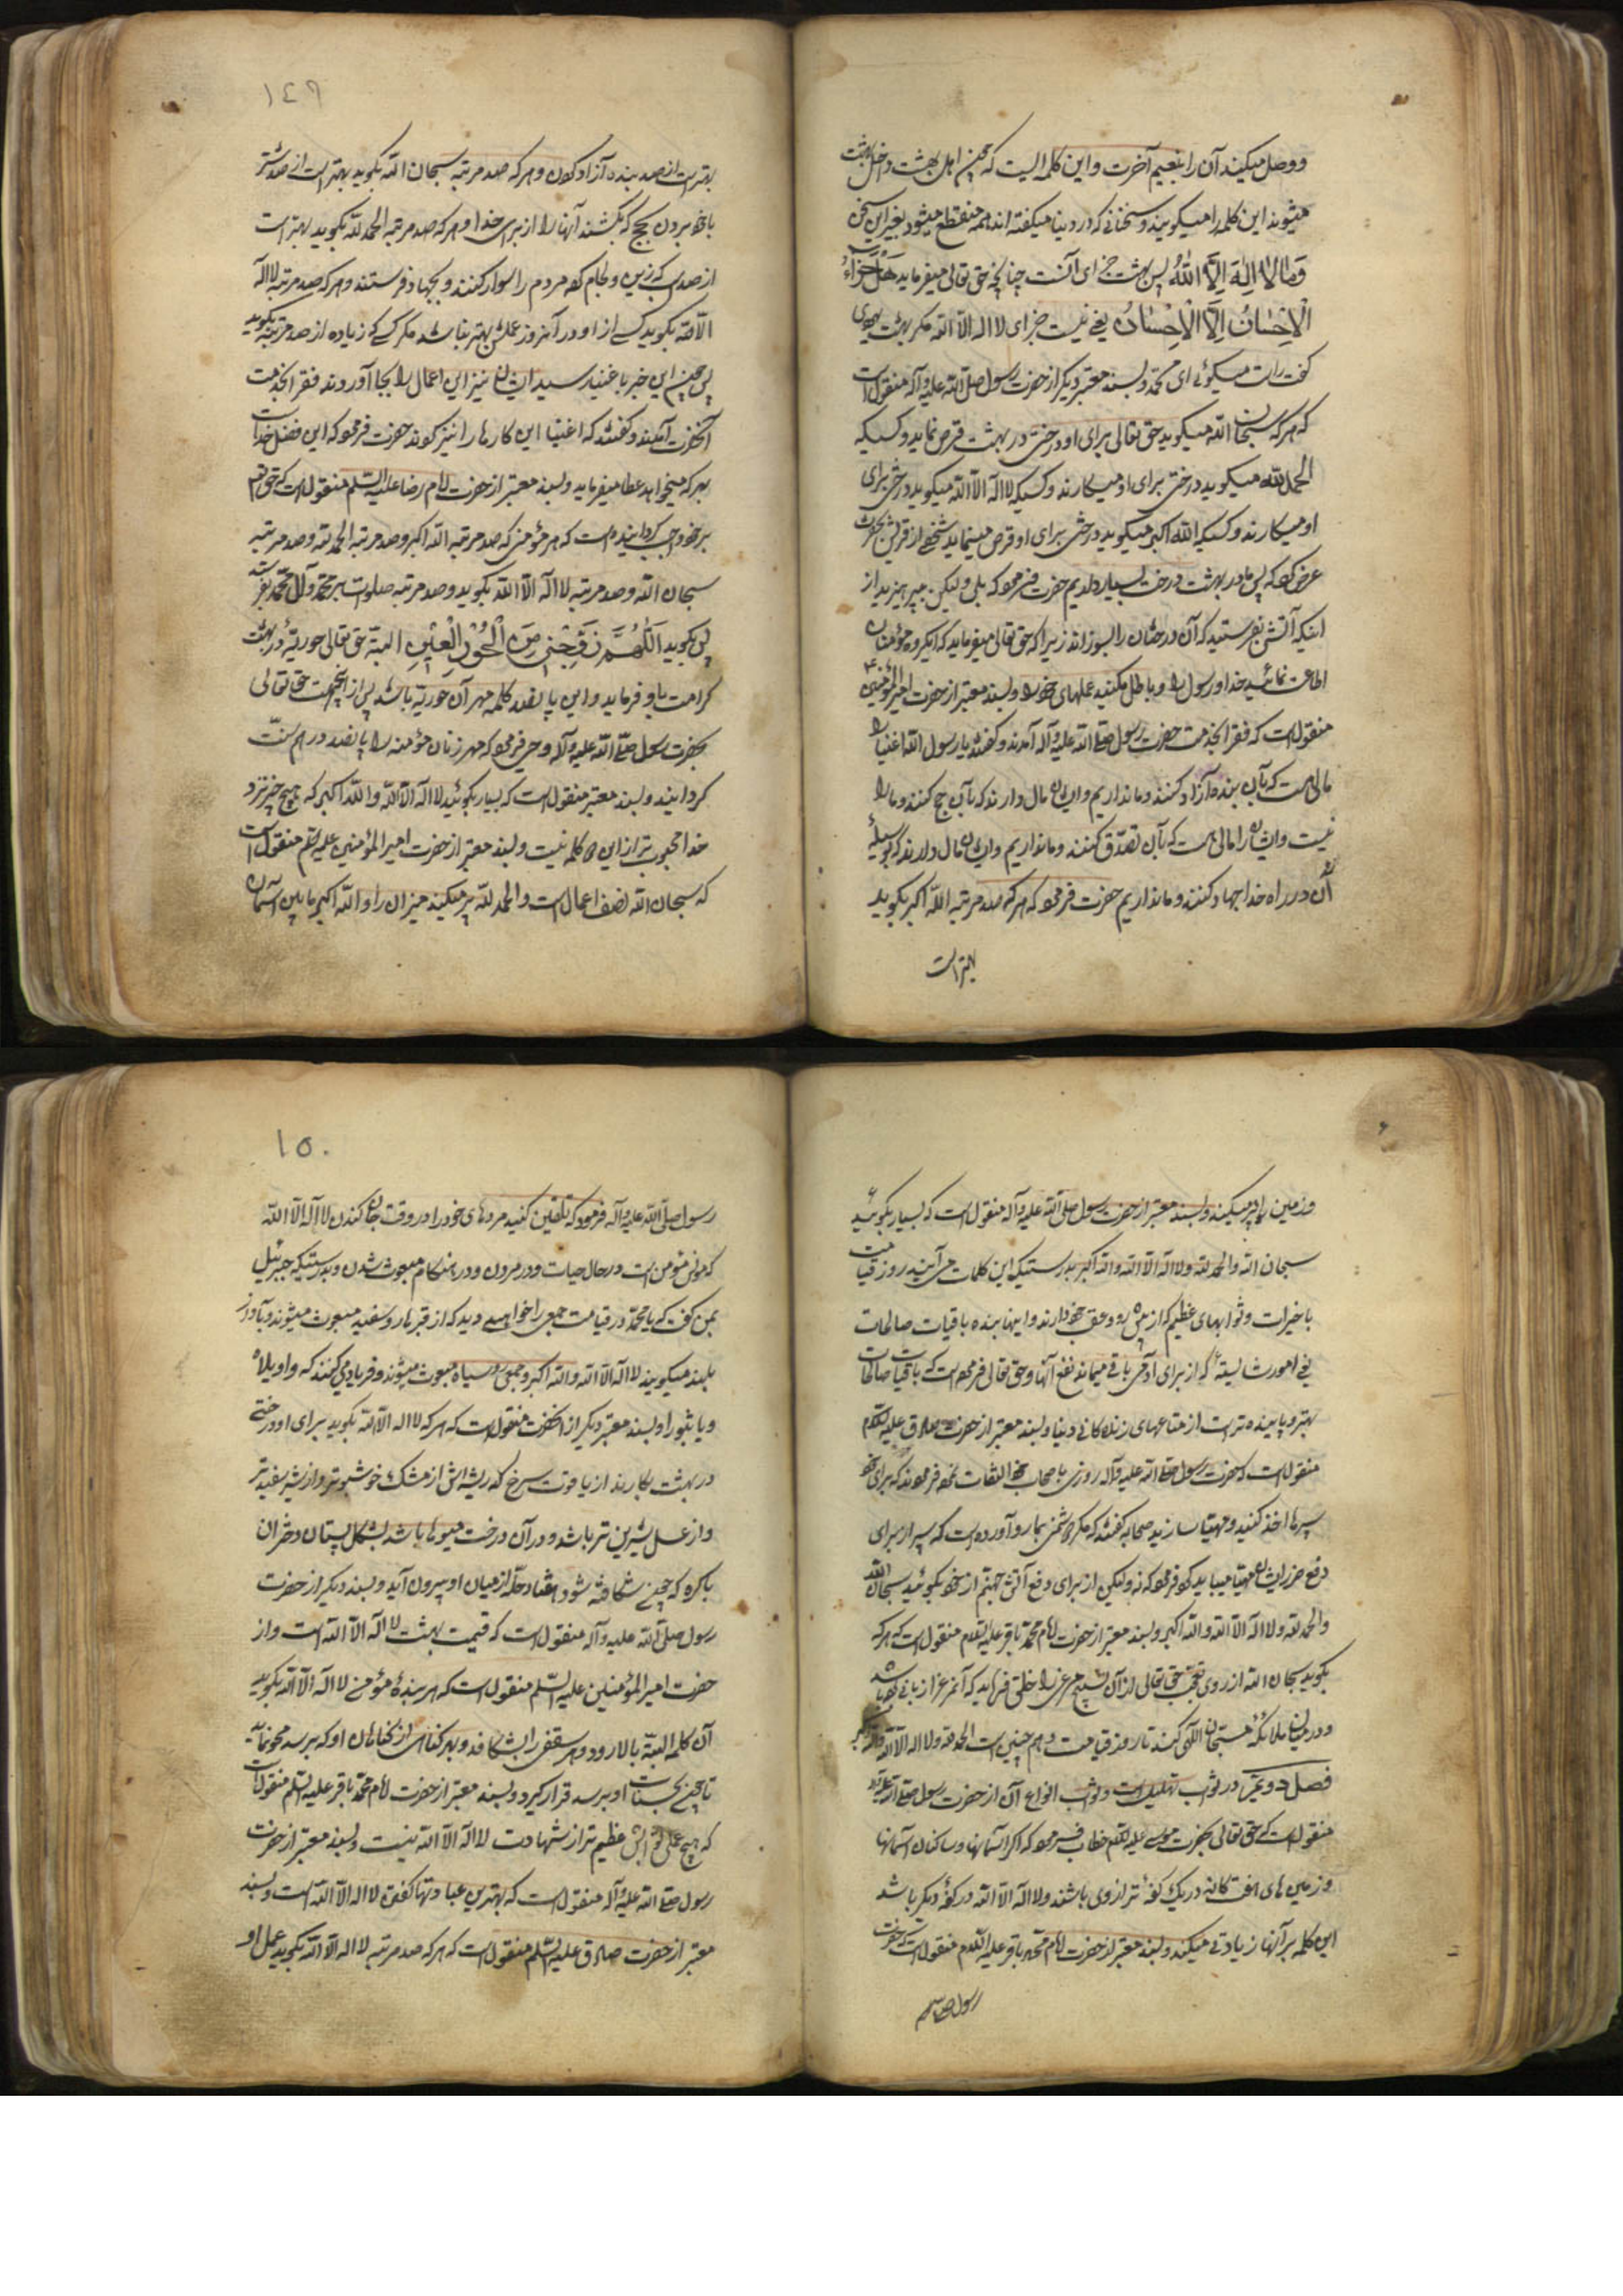 ووصل میکند آن را بنعیم آخرت و این کلمه ایست که چون اهل بهشت داخل بهشت
میشوند این کلمه را میگویند و سخنانی که در دنیا میگفته اند همه منقطع میشود بغیر این سخن
وَمَا لا اِلٰهَ اِلاَّ اللّٰهُ پس بهشت جزای آنست چنانچه حق تعالی میفرماید هَلْ جَزَاءُ
الْاِحْسَانِ اِلاَّ الْاِحْسَانُ یعنی نیست جزای لا اله الا الله مکر بهشت یهودی
کفت راست میکوئی ای محمد و بسند معتبر دیکر از حضرت رسول صلی الله علیه وآله منقول است
که هر که سبحان الله میکوید حق تعالی برای او درختی در بهشت غرس نماید و کسیکه
الحمد لله میکوید درختی برای او میکارند و کسیکه لا اله الا الله میکوید درختی برای
او میکارند و کسیکه الله اکبر میکوید درختی برای او غرس مینماید شخصی از قریش بحضرت
عرض کرد که پس ما در بهشت درخت بسیار داریم حضرت فرمود که بلی ولیکن بپرهیزید از
اینکه آتشی بفرستید که آن درختان را بسوزاند زیرا که حق تعالی میفرماید که ایکروه مؤمنان
اطاعت نمائید خدا و رسول را و باطل مکنید عملهای خود را و بسند معتبر از حضرت امیر المؤمنین ع
منقول است که فقرا بخدمت حضرت رسول صلی الله علیه وآله آمدند و کفتند یا رسول الله اغنیا را
مالی هست که بآن بنده آزاد کنند و ما نداریم و ایشان مال دارند که بآن حج کنند و ما را
نیست و ایشان را مالی هست که بآن تصدّق کنند و ما نداریم و ایشان مال دارند که بوسیلهٔ
آن در راه خدا جهاد کنند و ما نداریم حضرت فرمود که هر که صد مرتبه الله اکبر بکوید
بهتر است
١٤٩
بهتر است از صد بنده آزاد کردن و هر که صد مرتبه سبحان الله بکوید بهتر است از صد شتر
با خود بردن بحج که بکشند آنها را از برای خدا و هر که صد مرتبه الحمد لله بکوید بهتر است
از صد اسب که زین و لجام کرده مردم را سوار کنند و بجهاد فرستند و هر که صد مرتبه لا اله
الا الله بکوید کسی از او در آنروز عملش بهتر نباشد مکر کسی که زیاده از صد مرتبه بکوید
پس چون این خبر باغنیا رسید ایشان نیز این اعمال را بجا آوردند فقرا بخدمت
آنحضرت آمدند و کفتند که اغنیا این کارها را نیز کردند حضرت فرمود که این فضل خداست
بهر که میخواهد عطا میفرماید و بسند معتبر از حضرت امام رضا علیه السلم منقول است که حق تعالی
بر خود واجب کردانیده است که هر مؤمنی که صد مرتبه الله اکبر و صد مرتبه الحمد لله و صد مرتبه
سبحان الله و صد مرتبه لا اله الا الله بکوید و صد مرتبه صلوات بر محمد و آل محمد بفرستد
پس بکوید اَللّٰهُمَّ زَوِّجْنِی مِنَ الْحُوْرِ الْعِیْنِ البته حق تعالی حوریهٔ در بهشت
کرامت باو فرماید و این پانصد کلمه مهر آن حوریه باشد پس از اینجهت حق تعالی
بحضرت رسول صلی الله علیه وآله وحی فرمود که مهر زنان مؤمنه را پانصد درهم سنّت
کردانید و بسند معتبر منقول است که بسیار بکوئید لا اله الا الله والله اکبر که هیچ چیز نزد
خدا محبوب تر از این دو کلمه نیست و بسند معتبر از حضرت امیر المؤمنین علیه السلم منقول است
که سبحان الله نصف اعمال است و الحمد لله پر میکند میزان را و الله اکبر ما بین آسمان
و زمین را پر میکند و بسند معتبر از حضرت رسول صلی الله علیه وآله منقول است که بسیار بکوئید
سبحان الله والحمد لله ولا اله الا الله والله اکبر بدرستیکه این کلمات می آیند روز قیامت
با خیرات و ثوابهای عظیم که از پیش رو و عقب خود دارند و اینهایند باقیات صالحات
یعنی امور شایستهٔ که از برای آدمی باقی میماند نفع آنها و حق تعالی فرموده است که باقیات صالحات
بهتر و پاینده تر است از متاعهای زندکانی دنیا و بسند معتبر از حضرت صادق علیه السلم
منقول است که حضرت رسول صلی الله علیه وآله روزی باصحاب خود التفات نموده فرمودند که برای خود
سپرها اخذ کنید و مهیّا سازید صحابه کفتند که مکر دشمنی بما رو آورده است که سپر از برای
دفع ضرر ایشان مهیّا میباید کرد فرمود که نه ولیکن از برای دفع آتش جهنم از خود بکوئید سبحان الله
والحمد لله ولا اله الا الله والله اکبر و بسند معتبر از حضرت امام محمد باقر علیه السلم منقول است که هر که
بکوید سبحان الله از روی تعجب حق تعالی از آن تسبیح مرغی را خلق فرماید که آنمرغ را زبانی بوده باشد
و در میان ملائکهٔ مسبّحان الهی کند تا روز قیامت و هم چنین است الحمد لله ولا اله الا الله والله اکبر
فصل دویّم در ثواب تهلیل است و ثواب انواع آن از حضرت رسول صلی الله علیه وآله
منقول است که حق تعالی بحضرت موسی علیه السلم خطاب فرمود که اکر آسمانها و ساکنان آسمانها
و زمین های هفت کانه در یک کفهٔ ترازوی باشند و لا اله الا الله در کفهٔ دیکر باشد
این کلمه بر آنها زیادتی میکند و بسند معتبر از حضرت امام محمد باقر علیه السلم منقول است که حضرت
رسول صلی الله
١٥٠
رسول صلی الله علیه وآله فرمود که تلقین کنید مردهای خود را در وقت جان کندن لا اله الا الله
که مونس مؤمن است در حال حیات و در مردن و در هنکام مبعوث شدن و بدرستیکه جبرئیل
بمن کفت که یا محمد در قیامت جمعی را خواهی دید که از قبرها رو سفید مبعوث میشوند و بآواز
بلند میکویند لا اله الا الله والله اکبر و جمعی رو سیاه مبعوث میشوند و فریاد می کنند که واویلاه
و یا ثبورا و بسند معتبر دیکر از آنحضرت منقول است که هر که لا اله الا الله بکوید برای او درختی
در بهشت بکارند از یاقوت سرخ که ریشه اش از مشک خوشبو تر و از شیر سفید تر
و از عسل شیرین تر باشد و در آن درخت میوها باشد بشکل پستان دختران
باکره که چون شکافته شود هفتاد حلّه از میان او بیرون آید و بسند دیکر از حضرت
رسول صلی الله علیه وآله منقول است که قیمت بهشت لا اله الا الله است و از
حضرت امیر المؤمنین علیه السّلم منقول است که هر بندهٔ مؤمن که لا اله الا الله بکوید
آن کلمه البتّه بالا رود و هر سقفی را بشکافد و بهر کناهی از کناهان او که برسد محو نماید
تا چون بحسنات او برسد قرار کیرد و بسند معتبر از حضرت امام محمد باقر علیه السلم منقول است
که هیچ عملی ثوابش عظیم تر از شهادت لا اله الا الله نیست و بسند معتبر از حضرت
رسول صلی الله علیه وآله منقول است که بهترین عبادتها کفتن لا اله الا الله است و بسند
معتبر از حضرت صادق علیه السلم منقول است که هر که صد مرتبه لا اله الا الله بکوید عمل او